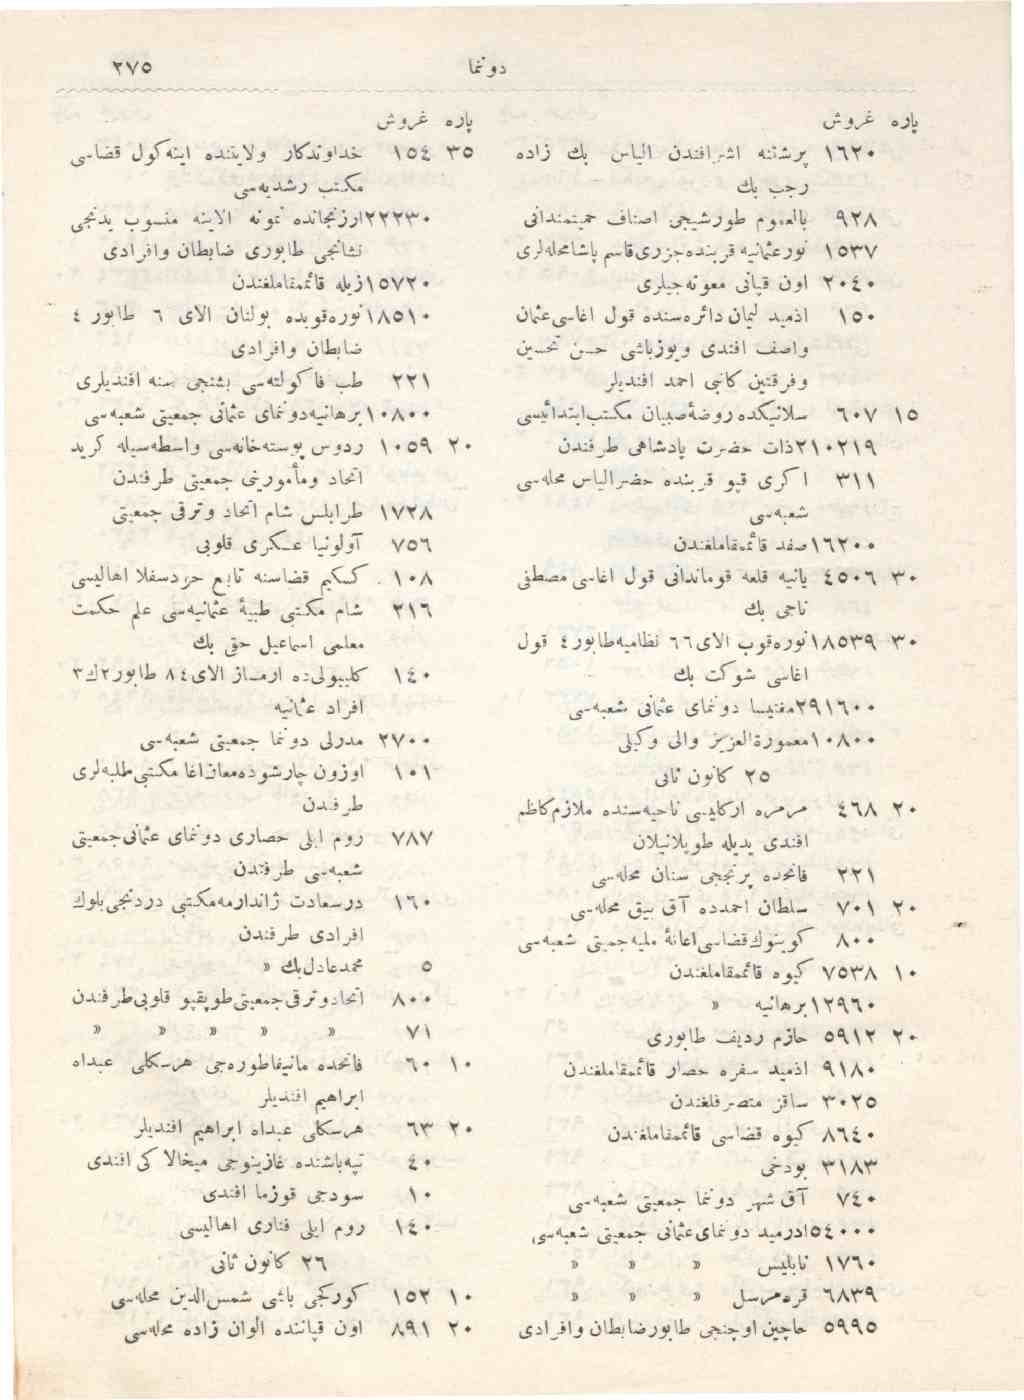 دوننما ٢٧٥
پاره غروش
١٦٢٠ پرشتنه اشرافندن الیاس بك زاده
رجب بك
٩٢٨ بالعموم طورشیجی اصناف حمیتمندانی
١٥٣٧ نورعثمانیه قربنده جزری قاسم پاشامحله لری
٢٠٤٠ اون قپانی معونه جیلری
١٥٠ اذمید لیمان دائره سنده قول اغاسی عثمان
واصف افندی ویوزباشی حسن تحسین
وفرقتین کاتبی احمد افندیلر
١٥ ٦٠٧ سلانیکده روضهٔ صبیان مکتب ابتدائیسی
٢١٠٢١٩ ذات حضرت پادشاهی طرفندن
٣١١ اکری قپو قربنده حضرالیاس محله سی
شعبه سی
١٦٢٠٠ صفد قائممقاملغندن
٣٠ ٤٥٠٦ یانیه قلعه قوماندانی قول اغاسی مصطفی
ناجی بك
٣٠ ١٨٥٣٩ نوره قوب الای ٦٦ نظامیه طابور ٤ قول
اغاسی شوکت بك
٢٩١٦٠٠ مغنیسا دونمای عثمانی شعبه سی
١٠٨٠٠ معمورة العزیز والی وکیلی
٢٥ کانون ثانی
٢٠ ٤٦٨ مرمره ارکادیسی ناحیه سنده ملازم کاظم
افندی یدیله طوپلانیلان
٢٢١ فاتحده پرنججی سنان محله سی
٢٠ ٧٠١ سلطان احمدده آق بیق محله سی
٨٠٠ کوینوك قضاسی اعانهٔ ملیه جمیتی شعبه سی
١٠ ٧٥٣٨ کیوه قائممقاملغندن
١٢٩٦٠ برهانیه »
٢٠ ٥٩١٢ حازم ردیف طابوری
٩١٨٠ اذمید سفره حصار قائممقاملغندن
٣٠٢٥ ساقز متصرفلغندن
٨٦٤٠ کیوه قضاسی قائممقاملغندن
٣١٨٣ بودخی
٧٤٠ آق شهر دوننما جمعیتی شعبه سی
٥٤٠٠٠ ادرمید دونمای عثمانی جمعیتی شعبه سی
١٧٦٠ نابلیس » » »
٦٨٣٩ قره مرسل » » »
٥٩٩٥ حاچین اوچنجی طابور ضابطان وافرادی
پاره غروش
٣٥ ١٥٤ خداوندکار ولایتنده اینه کول قضاسی
مکتب رشدیه سی
٢٢٢٣٠ ارزنجانده نمونه الاینه منسوب یدنجی
نشانجی طابوری ضابطان وافرادی
١٥٧٢٠ زیله قائممقاملغندن
١٨٥١٠ نوره قوبده بولنان الای ٦ طابور ٤
ضابطان وافرادی
٢٢١ طب فاکولته سی بشنجی سنه افندیلری
١٠٨٠٠ برهانیه دونمای عثمانی جمعیتی شعبه سی
٢٠ ١٠٥٩ ردوس پوسته خانه سی واسطه سیله کرید
اتحاد ومأمورینی جمعیتی طرفندن
١٧٢٨ طرابلس شام اتحاد وترقی جمعیتی
٧٥٦ آولونیا عسکری قلوبی
١٠٨ کسکیم قضاسنه تابع جرد سفلا اهالیسی
٢١٦ شام مکتبی طبیهٔ عثمانیه سی علم حکمت
معلمی اسماعیل حقی بك
١٤٠ کلیبولی ده ارمساز الای ٨٤ طابور ٢ ك ٣
افراد عثمانیه
٢٧٠٠ مدرلی دوننما جمعیتی شعبه سی
١٠١ اوزون چارشوده معاذاغا مکتبی طلبه لری
طرفندن
٧٨٧ روم ایلی حصاری دونمای عثمانی جمعیتی
شعبه سی طرفندن
١٦٠ درسعادت ژاندارمه مکتبی دردنجی بلوك
افرادی طرفندن
٥ محمد عادل بك »
٨٠٠ اتحاد وترقی جمعیتی طوپقپو قلوبی طرفندن
٧١ » » » » »
١٠ ٦٠ فاتحده مانیفاطوره جی هرسکلی عبداه
ابراهیم افندیلر
٢٠ ٦٣ هرسکلی عبداه ابراهیم افندیلر
٤٠ تپه باشنده غازینوجی میخالاکی افندی
١٠ سودجی قوزما افندی
١٤٠ روم ایلی فناری اهالیسی
٢٦ کانون ثانی
١٠ ١٥٢ کورکجی باشی شمس الدین محله سی
٢٠ ٨٩١ اون قپاننده الوان زاده محله سی